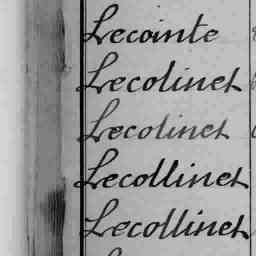 Lecointe
Lecolinet
Lecolinet
Lecollinet
Lecollinet